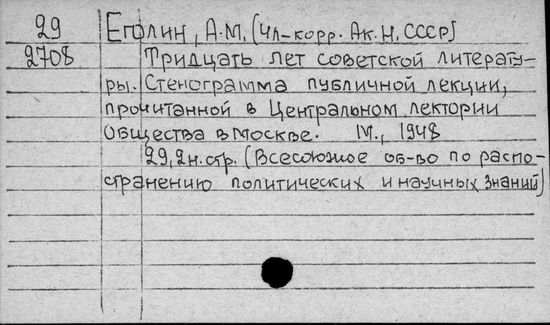 29 Еголин, А.М. (Чл-корр. Ак. Н. СССР)
2708 Тридцать лет советской литерату-
ры. Стенограмма публичной лекции,
прочитанной в Центральном лектории
Общества в Москве. М., 1948
29, 2н. стр. (Всесоюзное об-во по распо-
странению политических и научных знаний)